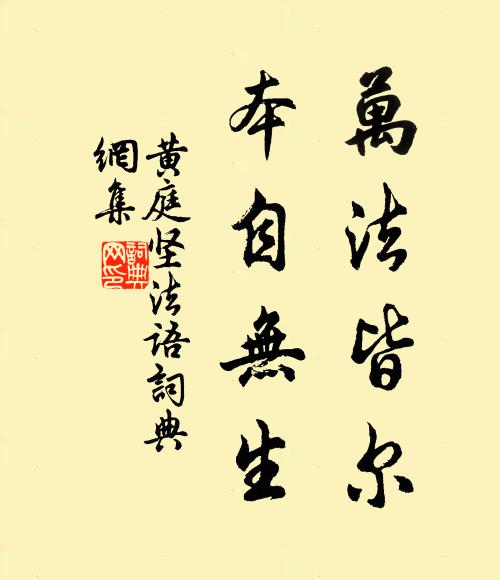 萬法皆尔
本自無生
黄庭坚法语詞典
網集
詞典
网印